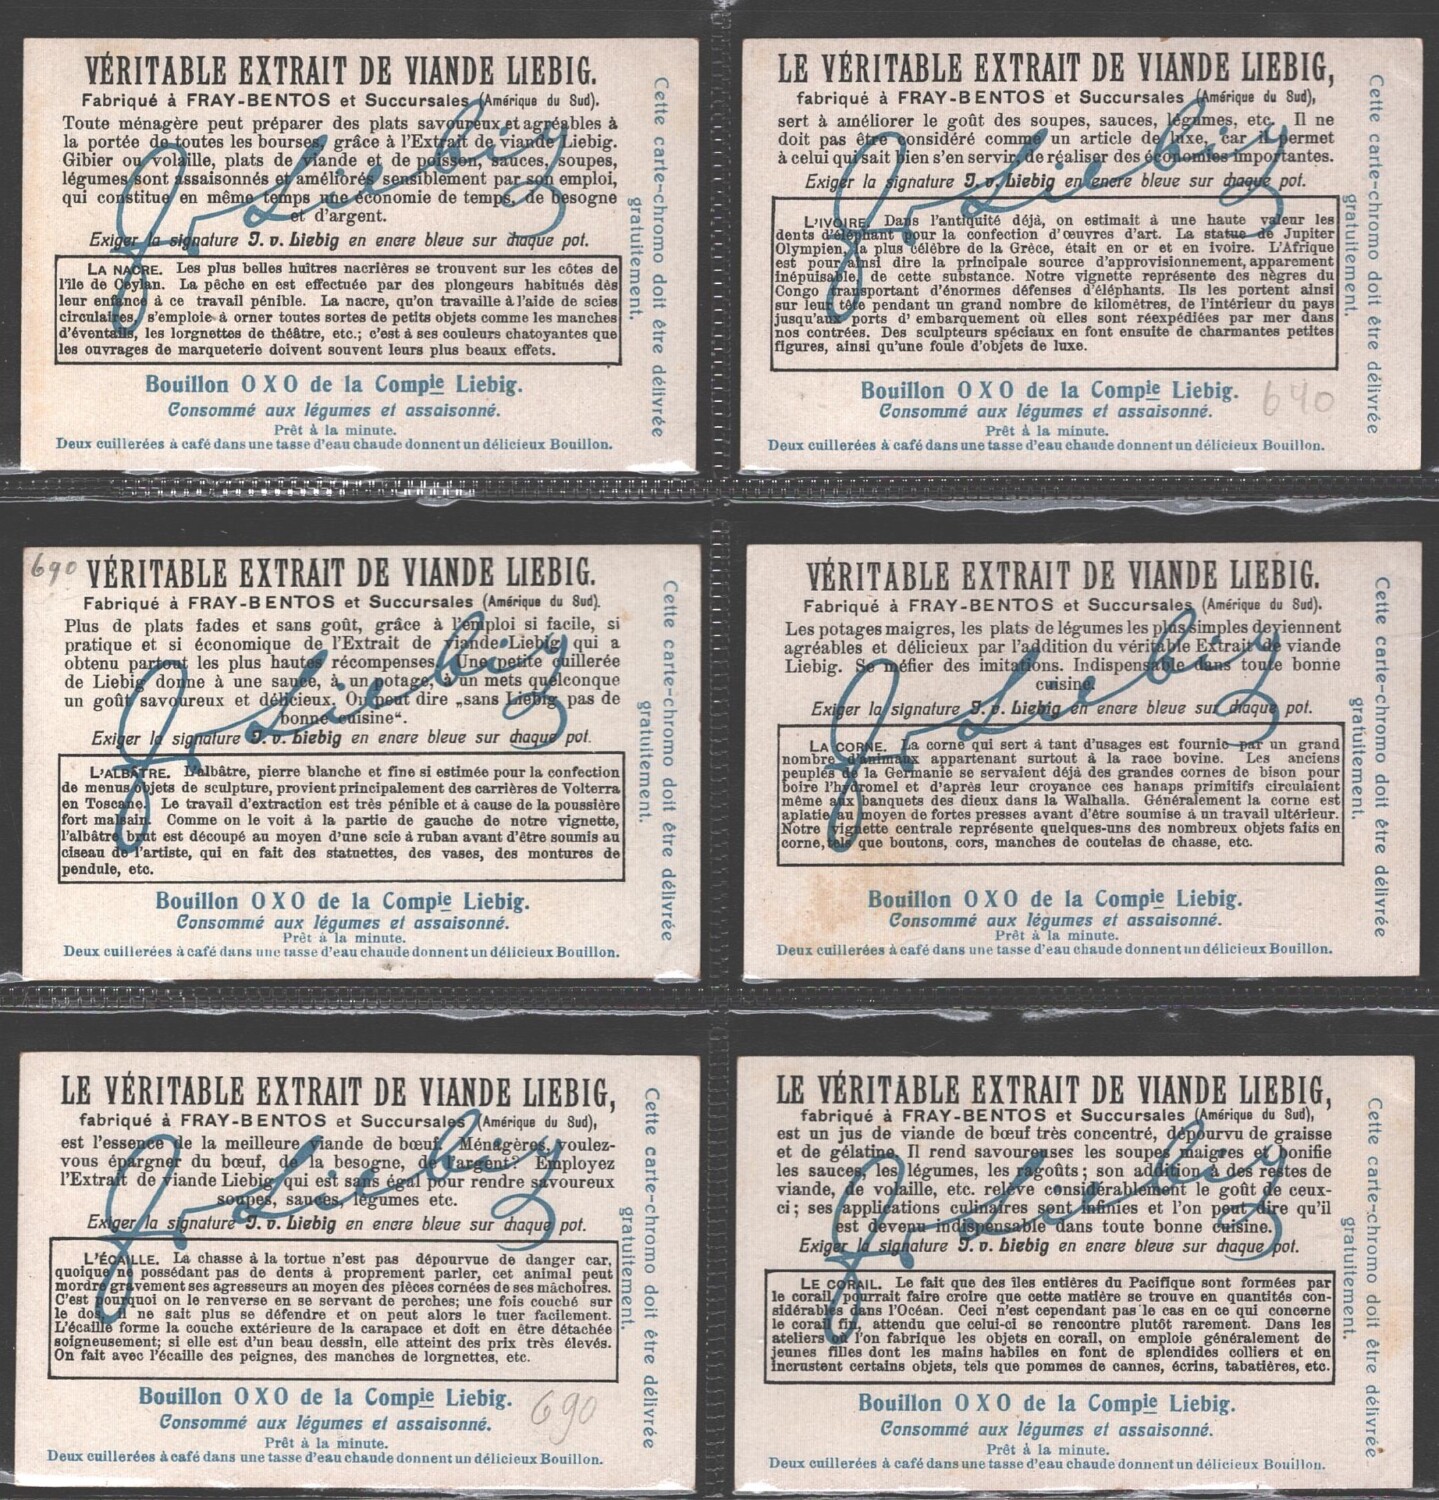 VÉRITABLE EXTRAIT DE VIANDE LIEBIG.
Fabriqué à FRAY-BENTOS et Succursales (Amérique du Sud).
Toute ménagère peut préparer des plats savoureux et agréables à
la portée de toutes les bourses, grâce à l'Extrait de viande Liebig.
Gibier ou volaille, plats de viande et de poisson, sauces, soupes,
légumes sont assaisonnés et améliorés sensiblement par son emploi,
qui constitue en même temps une économie de temps, de besogne
et d'argent.
Exiger la signature J. v. Liebig en encre bleue sur chaque pot.
LA NACRE. Les plus belles huîtres nacrières se trouvent sur les côtes de
l'île de Ceylan. La pêche en est effectuée par des plongeurs habitués dès
leur enfance à ce travail pénible. La nacre, qu'on travaille à l'aide de scies
circulaires, s'emploie à orner toutes sortes de petits objets comme les manches
d'éventails, les lorgnettes de théâtre, etc.; c'est à ses couleurs chatoyantes que
les ouvrages de marqueterie doivent souvent leurs plus beaux effets.
Bouillon OXO de la Compie Liebig.
Consommé aux légumes et assaisonné.
Prêt à la minute.
Deux cuillerées à café dans une tasse d'eau chaude donnent un délicieux Bouillon.
Cette carte-chromo doit être délivrée
gratuitement.
J. v. Liebig
LE VÉRITABLE EXTRAIT DE VIANDE LIEBIG,
fabriqué à FRAY-BENTOS et Succursales (Amérique du Sud),
sert à améliorer le goût des soupes, sauces, légumes, etc. Il ne
doit pas être considéré comme un article de luxe, car il permet
à celui qui sait bien s'en servir de réaliser des économies importantes.
Exiger la signature J. v. Liebig en encre bleue sur chaque pot.
L'IVOIRE. Dans l'antiquité déjà, on estimait à une haute valeur les
dents d'éléphant pour la confection d'œuvres d'art. La statue de Jupiter
Olympien, la plus célèbre de la Grèce, était en or et en ivoire. L'Afrique
est pour ainsi dire la principale source d'approvisionnement, apparement
inépuisable, de cette substance. Notre vignette représente des nègres du
Congo transportant d'énormes défenses d'éléphants. Ils les portent ainsi
sur leur tête pendant un grand nombre de kilomètres, de l'intérieur du pays
jusqu'aux ports d'embarquement où elles sont réexpédiées par mer dans
nos contrées. Des sculpteurs spéciaux en font ensuite de charmantes petites
figures, ainsi qu'une foule d'objets de luxe.
Bouillon OXO de la Compie Liebig.
Consommé aux légumes et assaisonné.
Prêt à la minute.
Deux cuillerées à café dans une tasse d'eau chaude donnent un délicieux Bouillon.
640
Cette carte-chromo doit être délivrée
gratuitement.
J. v. Liebig
690
VÉRITABLE EXTRAIT DE VIANDE LIEBIG.
Fabriqué à FRAY-BENTOS et Succursales (Amérique du Sud).
Plus de plats fades et sans goût, grâce à l'emploi si facile, si
pratique et si économique de l'Extrait de viande Liebig qui a
obtenu partout les plus hautes récompenses. Une petite cuillerée
de Liebig donne à une sauce, à un potage, à un mets quelconque
un goût savoureux et délicieux. On peut dire „sans Liebig pas de
bonne cuisine“.
Exiger la signature J. v. Liebig en encre bleue sur chaque pot.
L'ALBÂTRE. L'albâtre, pierre blanche et fine si estimée pour la confection
de menus objets de sculpture, provient principalement des carrières de Volterra
en Toscane. Le travail d'extraction est très pénible et à cause de la poussière
fort malsain. Comme on le voit à la partie de gauche de notre vignette,
l'albâtre brut est découpé au moyen d'une scie à ruban avant d'être soumis au
ciseau de l'artiste, qui en fait des statuettes, des vases, des montures de
pendule, etc.
Bouillon OXO de la Compie Liebig.
Consommé aux légumes et assaisonné.
Prêt à la minute.
Deux cuillerées à café dans une tasse d'eau chaude donnent un délicieux Bouillon.
Cette carte-chromo doit être délivrée
gratuitement.
J. v. Liebig
VÉRITABLE EXTRAIT DE VIANDE LIEBIG.
Fabriqué à FRAY-BENTOS et Succursales (Amérique du Sud).
Les potages maigres, les plats de légumes les plus simples deviennent
agréables et délicieux par l'addition du véritable Extrait de viande
Liebig. Se méfier des imitations. Indispensable dans toute bonne
cuisine.
Exiger la signature J. v. Liebig en encre bleue sur chaque pot.
LA CORNE. La corne qui sert à tant d'usages est fournie par un grand
nombre d'animaux appartenant surtout à la race bovine. Les anciens
peuples de la Germanie se servaient déjà des grandes cornes de bison pour
boire l'hydromel et d'après leur croyance ces hanaps primitifs circulaient
même aux banquets des dieux dans la Walhalla. Généralement la corne est
aplatie au moyen de fortes presses avant d'être soumise à un travail ultérieur.
Notre vignette centrale représente quelques-uns des nombreux objets faits en
corne, tels que boutons, cors, manches de coutelas de chasse, etc.
Bouillon OXO de la Compie Liebig.
Consommé aux légumes et assaisonné.
Prêt à la minute.
Deux cuillerées à café dans une tasse d'eau chaude donnent un délicieux Bouillon.
Cette carte-chromo doit être délivrée
gratuitement.
J. v. Liebig
LE VÉRITABLE EXTRAIT DE VIANDE LIEBIG,
fabriqué à FRAY-BENTOS et Succursales (Amérique du Sud),
est l'essence de la meilleure viande de bœuf. Ménagères, voulez-
vous épargner du bœuf, de la besogne, de l'argent? Employez
l'Extrait de viande Liebig, qui est sans égal pour rendre savoureux
soupes, sauces, légumes etc.
Exiger la signature J. v. Liebig en encre bleue sur chaque pot.
L'ÉCAILLE. La chasse à la tortue n'est pas dépourvue de danger car,
quoique ne possédant pas de dents à proprement parler, cet animal peut
mordre gravement ses agresseurs au moyen des pièces cornées de ses mâchoires.
C'est pourquoi on le renverse en se servant de perches; une fois couché sur
le dos, il ne sait plus se défendre et on peut alors le tuer facilement.
L'écaille forme la couche extérieure de la carapace et doit en être détachée
soigneusement; si elle est d'un beau dessin, elle atteint des prix très élevés.
On fait avec l'écaille des peignes, des manches de lorgnettes, etc.
Bouillon OXO de la Compie Liebig.
Consommé aux légumes et assaisonné.
Prêt à la minute.
Deux cuillerées à café dans une tasse d'eau chaude donnent un délicieux Bouillon.
690
Cette carte-chromo doit être délivrée
gratuitement.
J. v. Liebig
LE VÉRITABLE EXTRAIT DE VIANDE LIEBIG,
fabriqué à FRAY-BENTOS et Succursales (Amérique du Sud),
est un jus de viande de bœuf très concentré, dépourvu de graisse
et de gélatine. Il rend savoureuses les soupes maigres et bonifie
les sauces, les légumes, les ragoûts; son addition à des restes de
viande, de volaille, etc. relève considérablement le goût de ceux-
ci; ses applications culinaires sont infinies et l'on peut dire qu'il
est devenu indispensable dans toute bonne cuisine.
Exiger la signature J. v. Liebig en encre bleue sur chaque pot.
LE CORAIL. Le fait que des îles entières du Pacifique sont formées par
le corail pourrait faire croire que cette matière se trouve en quantités con-
sidérables dans l'Océan. Ceci n'est cependant pas le cas en ce qui concerne
le corail fin, attendu que celui-ci se rencontre plutôt rarement. Dans les
ateliers où l'on fabrique les objets en corail, on emploie généralement de
jeunes filles dont les mains habiles en font de splendides colliers et en
incrustent certains objets, tels que pommes de cannes, écrins, tabatières, etc.
Bouillon OXO de la Compie Liebig.
Consommé aux légumes et assaisonné.
Prêt à la minute.
Deux cuillerées à café dans une tasse d'eau chaude donnent un délicieux Bouillon.
Cette carte-chromo doit être délivrée
gratuitement.
J. v. Liebig